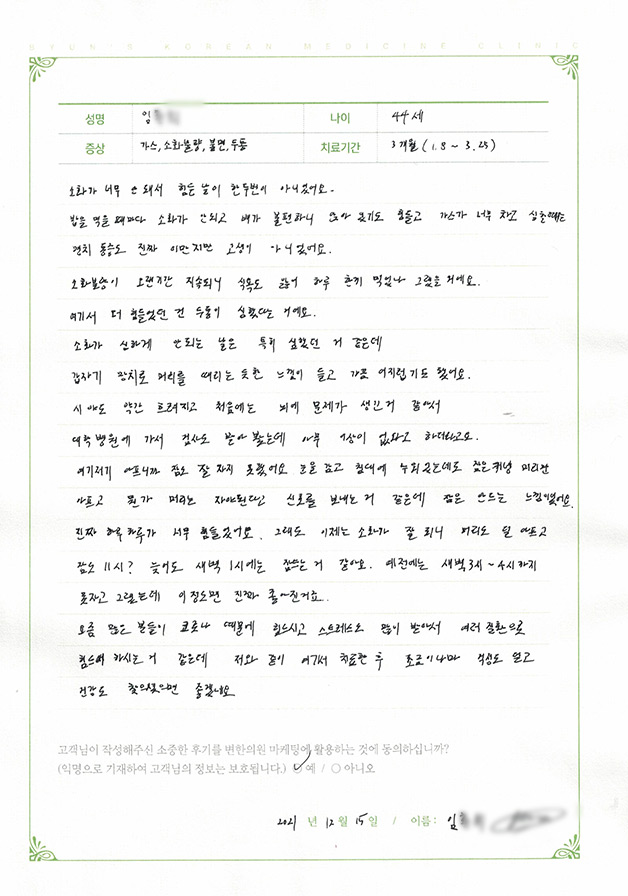 BYUN'S KOREAN MEDICINE CLINIC
성명 임 나이 44세
증상 가스, 소화불량, 불면, 두통 치료기간 3개월 (1.8 ~ 3.25)
소화가 너무 안돼서 힘든 날이 한두번이 아니었어요.
밥을 먹을 때마다 소화가 안되고 배가 불편하니 앉아 있기도 힘들고 가스가 너무 차고 심할때는
명치 통증도 진짜 이만저만 고생이 아니었어요.
소화불량이 오랜기간 지속되니 식욕도 없어 하루 한끼 먹었나 그랬을거에요.
여기서 더 힘들었던 건 두통이 심했다는 거에요.
소화가 심하게 안되는 날은 특히 심했던 거 같은데
갑자기 망치로 머리를 때리는 듯한 느낌이 들고 가끔 어지럽기도 했어요.
시야도 약간 흐려지고 처음에는 뇌에 문제가 생긴거 같아서
대학병원에 가서 검사도 받아 봤는데 아무 이상이 없다고 하더라고요.
여기저기 아프니까 잠도 잘 자지 못했어요 눈을 감고 침대에 누워있는데도 잠은커녕 머리만
아프고 뭔가 머리는 자야된다고 신호를 보내는거 같은데 잠은 안드는 느낌이었어요.
진짜 하루하루가 너무 힘들었어요. 그래도 이제는 소화가 잘 되니 머리도 덜 아프고
잠도 11시? 늦어도 새벽 1시에는 잠드는거 같아요. 예전에는 새벽 3시~4시까지
못자고 그랬는데 이정도면 진짜 좋아진거죠.
요즘 많은 분들이 코로나 때문에 힘드시고 스트레스도 많이 받아서 여러 질환으로
힘들어 하시는거 같은데 저와 같이 여기서 치료한 후 조금이나마 안정도 얻고
건강도 찾으셨으면 좋겠네요
고객님이 작성해주신 소중한 후기를 변한의원 마케팅에 활용하는 것에 동의하십니까?
(익명으로 기재하여 고객님의 정보는 보호됩니다.) ○ 예 / ○ 아니오
2021 년 12 월 15 일 / 이름 : 임